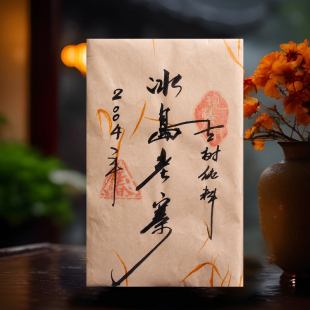 冰島老寨
古树纯料
2004年